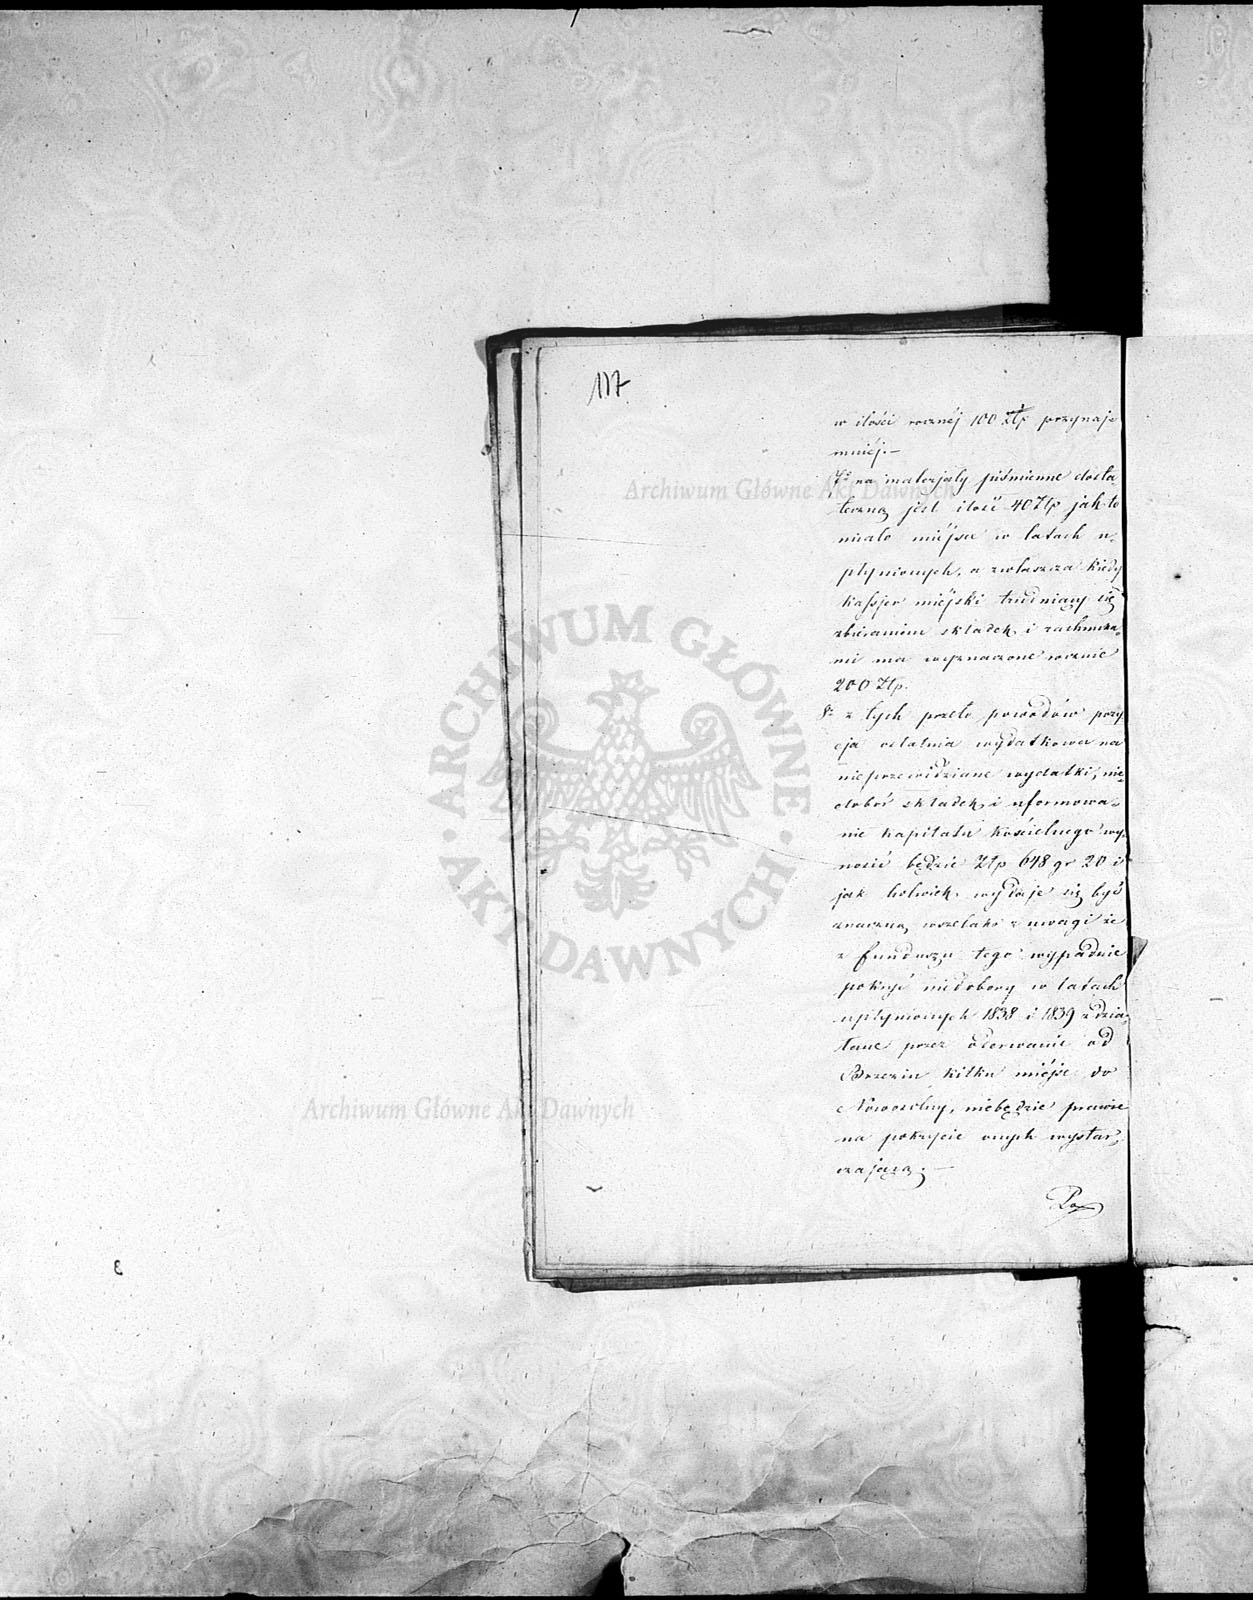 117.
w ilości rocznéj 100 Złp przynaj=
mniéj. —
7° na materjały piśmienne dosta=
teczną jest ilość 40 Złp jak to
miało miéjsce w latach u=
płynionych, a zwłaszcza kiedy
kassjer miéjski trudniący się
zbieraniem składek i rachunka=
mi ma wyznaczone rocznie
200 Złp.
8° z tych przeto powodów pozy
cja ostatnia wydatkowa na
nieprzewidziane wydatki, nie=
dobór składek i uformowa=
nie kapitału kościelnego wy=
nosić będzie Złp 648 gr 20 i
jak kolwiek wydaje się być
znaczną, wszelako z uwagi że
z funduszu tego wypadnie
pokryć niedobory w latach
upłynionych 1838 i 1839 zdzia=
łane przez oderwanie od
Brzezin kilku miéjsc do
Nowosolny, niebędzie prawie
na pokrycie onych wystar=
czającą. —
Archiwum Główne Akt Dawnych
ARCHIWUM GŁÓWNE
· AKT DAWNYCH ·
Archiwum Główne Akt Dawnych